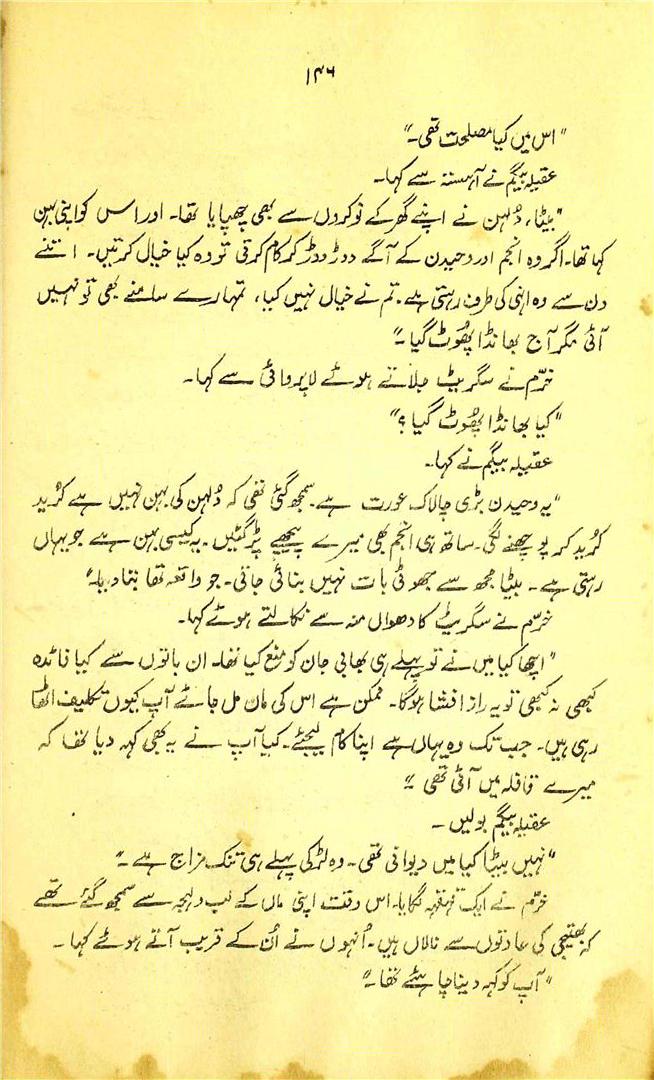 ۱۴۶
"اس میں کیا مصلحت تھی۔"
عقیلہ بیگم نے آہستہ سے کہا۔
"بیٹا، دُلہن نے اپنے گھر کے نوکروں سے بھی چھپایا تھا۔ اور اس کو اپنی بہن
کہا تھا۔ اگر وہ انجم اور وحیدن کے آگے دوڑ دوڑ کر کام کرتی تو وہ کیا خیال کرتیں۔ اتنے
دن سے وہ اپنی کی طرف رہتی ہے۔ تم نے خیال نہیں کیا، تمہارے سامنے بھی تو نہیں
آئی مگر آج بھانڈا پھُوٹ گیا۔"
خرّم نے سگریٹ جلاتے ہوئے لاپروائی سے کہا۔
"کیا بھانڈا پھُوٹ گیا؟"
عقیلہ بیگم نے کہا۔
"یہ وحیدن بڑی چالاک عورت ہے۔ سمجھ گئی تھی کہ دُلہن کی بہن نہیں ہے کُرید
کُرید کر پوچھنے لگی۔ ساتھ ہی انجم بھی میرے پیچھے پڑ گئیں۔ یہ کیسی بہن ہے جو یہاں
رہتی ہے۔ بیٹا مجھ سے جھوٹی بات نہیں بنائی جاتی۔ جو واقعہ تھا بتا دیا۔"
خرّم نے سگریٹ کا دھواں منہ سے نکالتے ہوئے کہا۔
"اچھا کیا میں نے تو پہلے ہی بھابی جان کو منع کیا تھا۔ ان باتوں سے کیا فائدہ
کبھی نہ کبھی تو یہ راز افشا ہوگا۔ ممکن ہے اس کی ماں مل جائے آپ کیوں تکلیف اٹھا
رہی ہیں۔ جب تک وہ یہاں ہے اپنا کام لیجئے۔ کیا آپ نے یہ بھی کہہ دیا تھا کہ
میرے قافلہ میں آئی تھی۔"
عقیلہ بیگم بولیں۔
"نہیں بیٹا کیا میں دیوانی تھی۔ وہ لڑکی پہلے ہی تنک مزاج ہے۔"
خرّم نے ایک قہقہہ لگایا۔ اس وقت اپنی ماں کے لب و لہجہ سے سمجھ گئے تھے
کہ بھتیجی کی عادتوں سے نالاں ہیں۔ اُنہوں نے اُن کے قریب آتے ہوئے کہا۔
"آپ کو کہہ دینا چاہئے تھا۔"